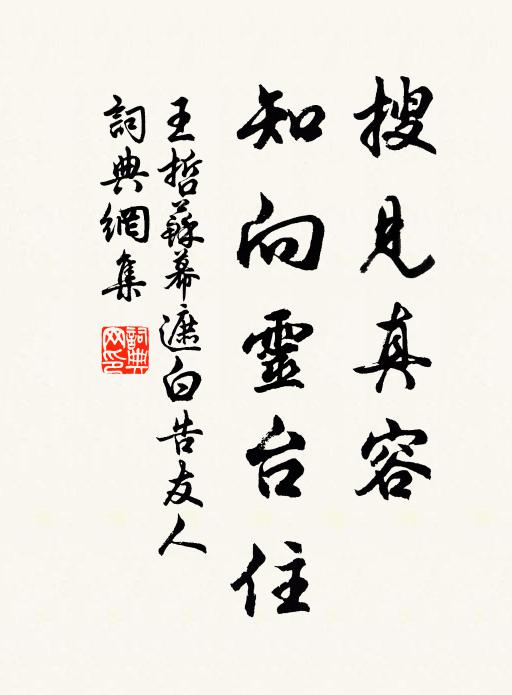 搜見真容
知向靈台住
王哲蘇幕遮白告友人
詞典網集
詞典网印